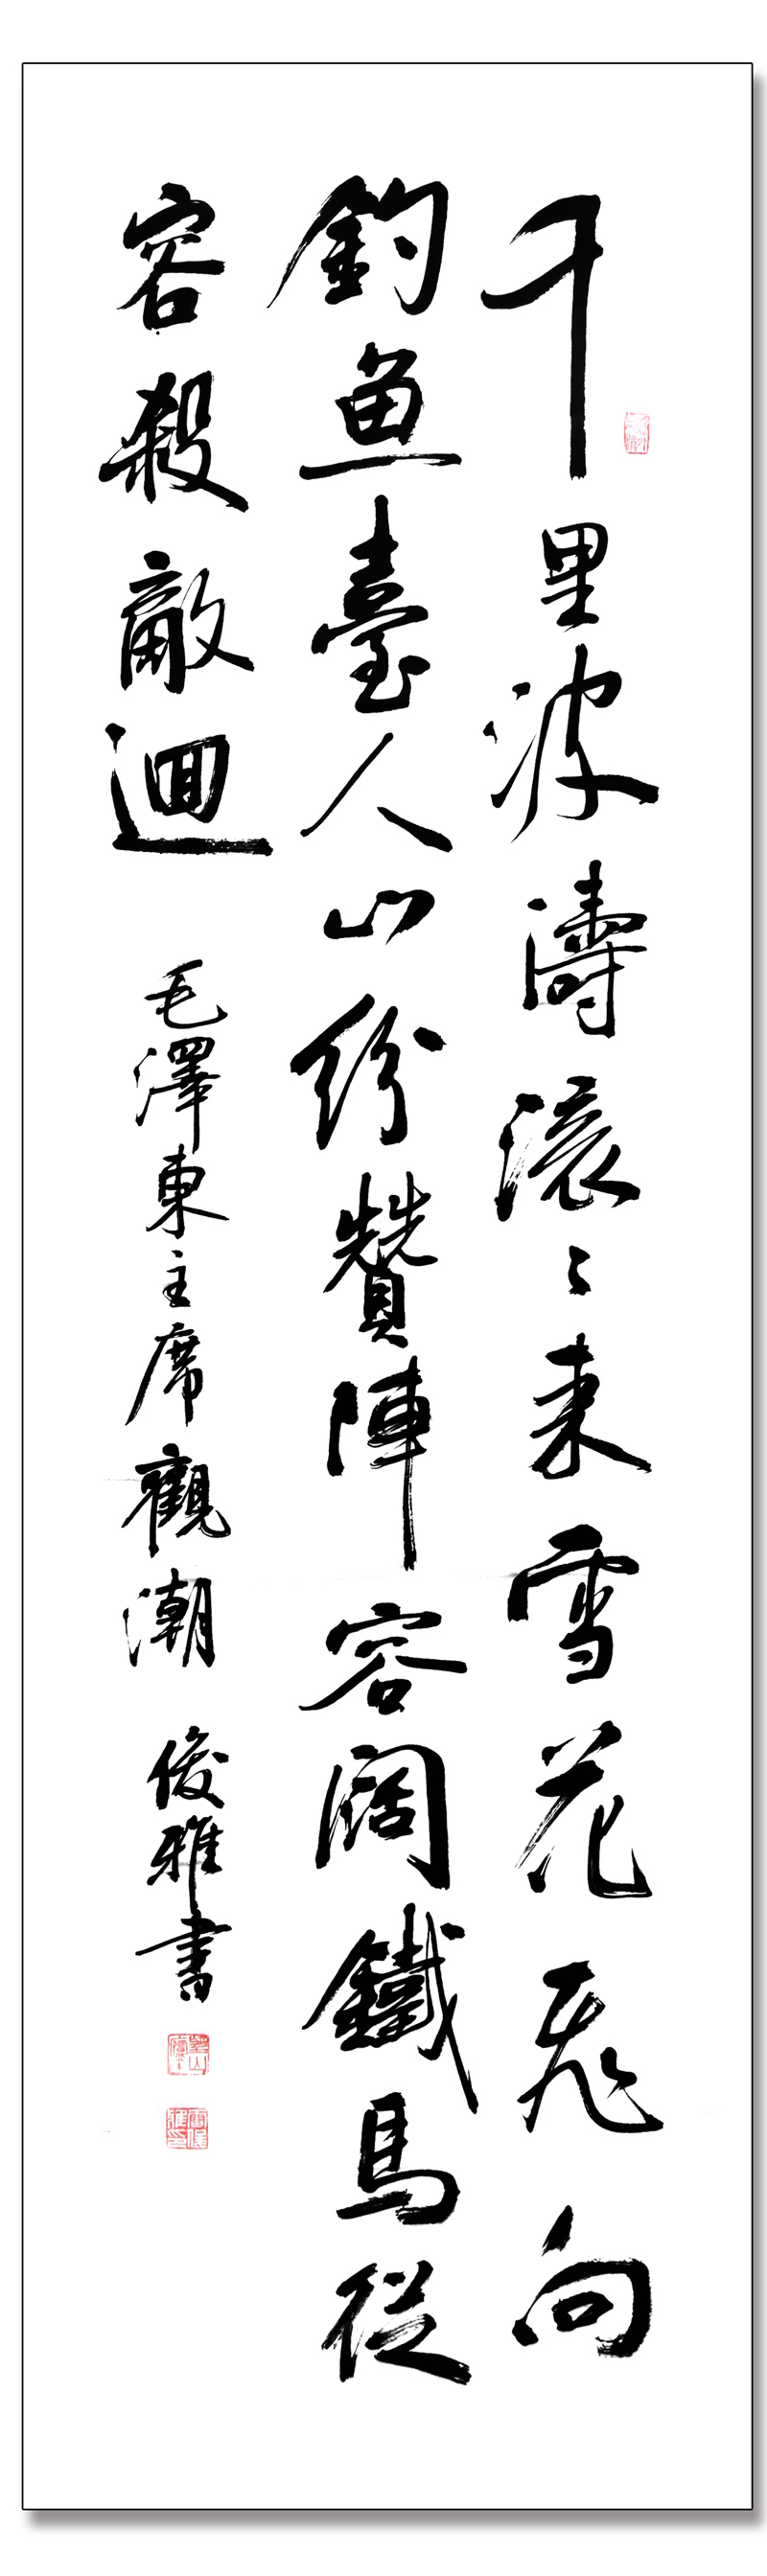 千里波濤滾〻來雪花飛向
釣魚臺人山紛贊陣容闊鐵馬從
容殺敵迴
毛澤東主席觀潮
俊雅書